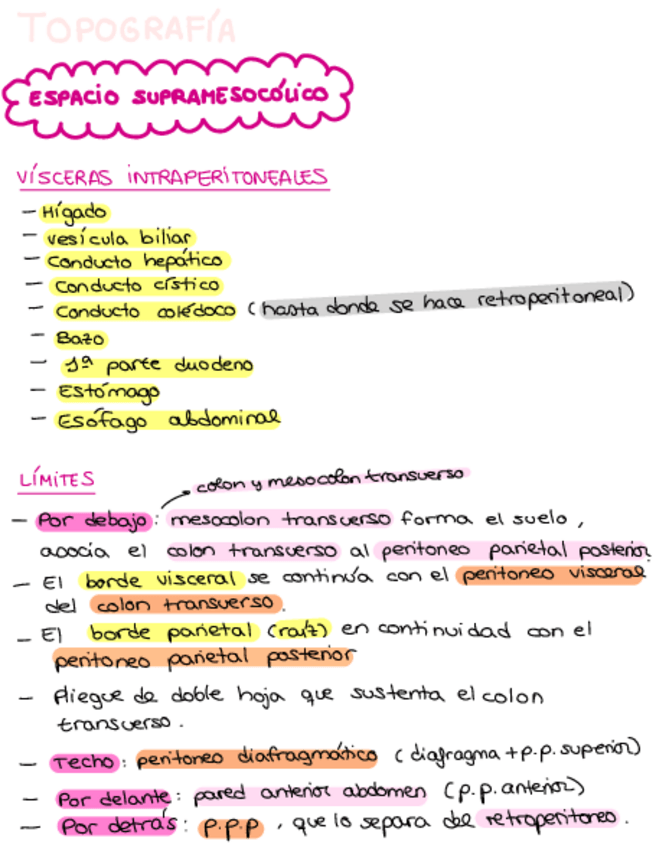 TOPOGRAFÍA
ESPACIO SUPRAMESOCÓLICO
VÍSCERAS INTRAPERITONEALES
- Hígado
- vesícula biliar
- Conducto hepático
- Conducto cístico
- Conducto colédoco (hasta donde se hace retroperitoneal)
- Bazo
- 1ª parte duodeno
- Estómago
- Esófago abdominal
LÍMITES
colon y mesocolon transverso
- Por debajo: mesocolon transverso forma el suelo,
asocia el colon transverso al peritoneo parietal posterior.
- El borde visceral se continúa con el peritoneo visceral
del colon transverso.
- El borde parietal (raíz) en continuidad con el
peritoneo parietal posterior
- Pliegue de doble hoja que sustenta el colon
transverso.
- Techo: peritoneo diafragmático (diafragma + p.p. superior)
- Por delante: pared anterior abdomen (p.p. anterior)
- Por detrás: p.p.p, que lo separa del retroperitoneo.